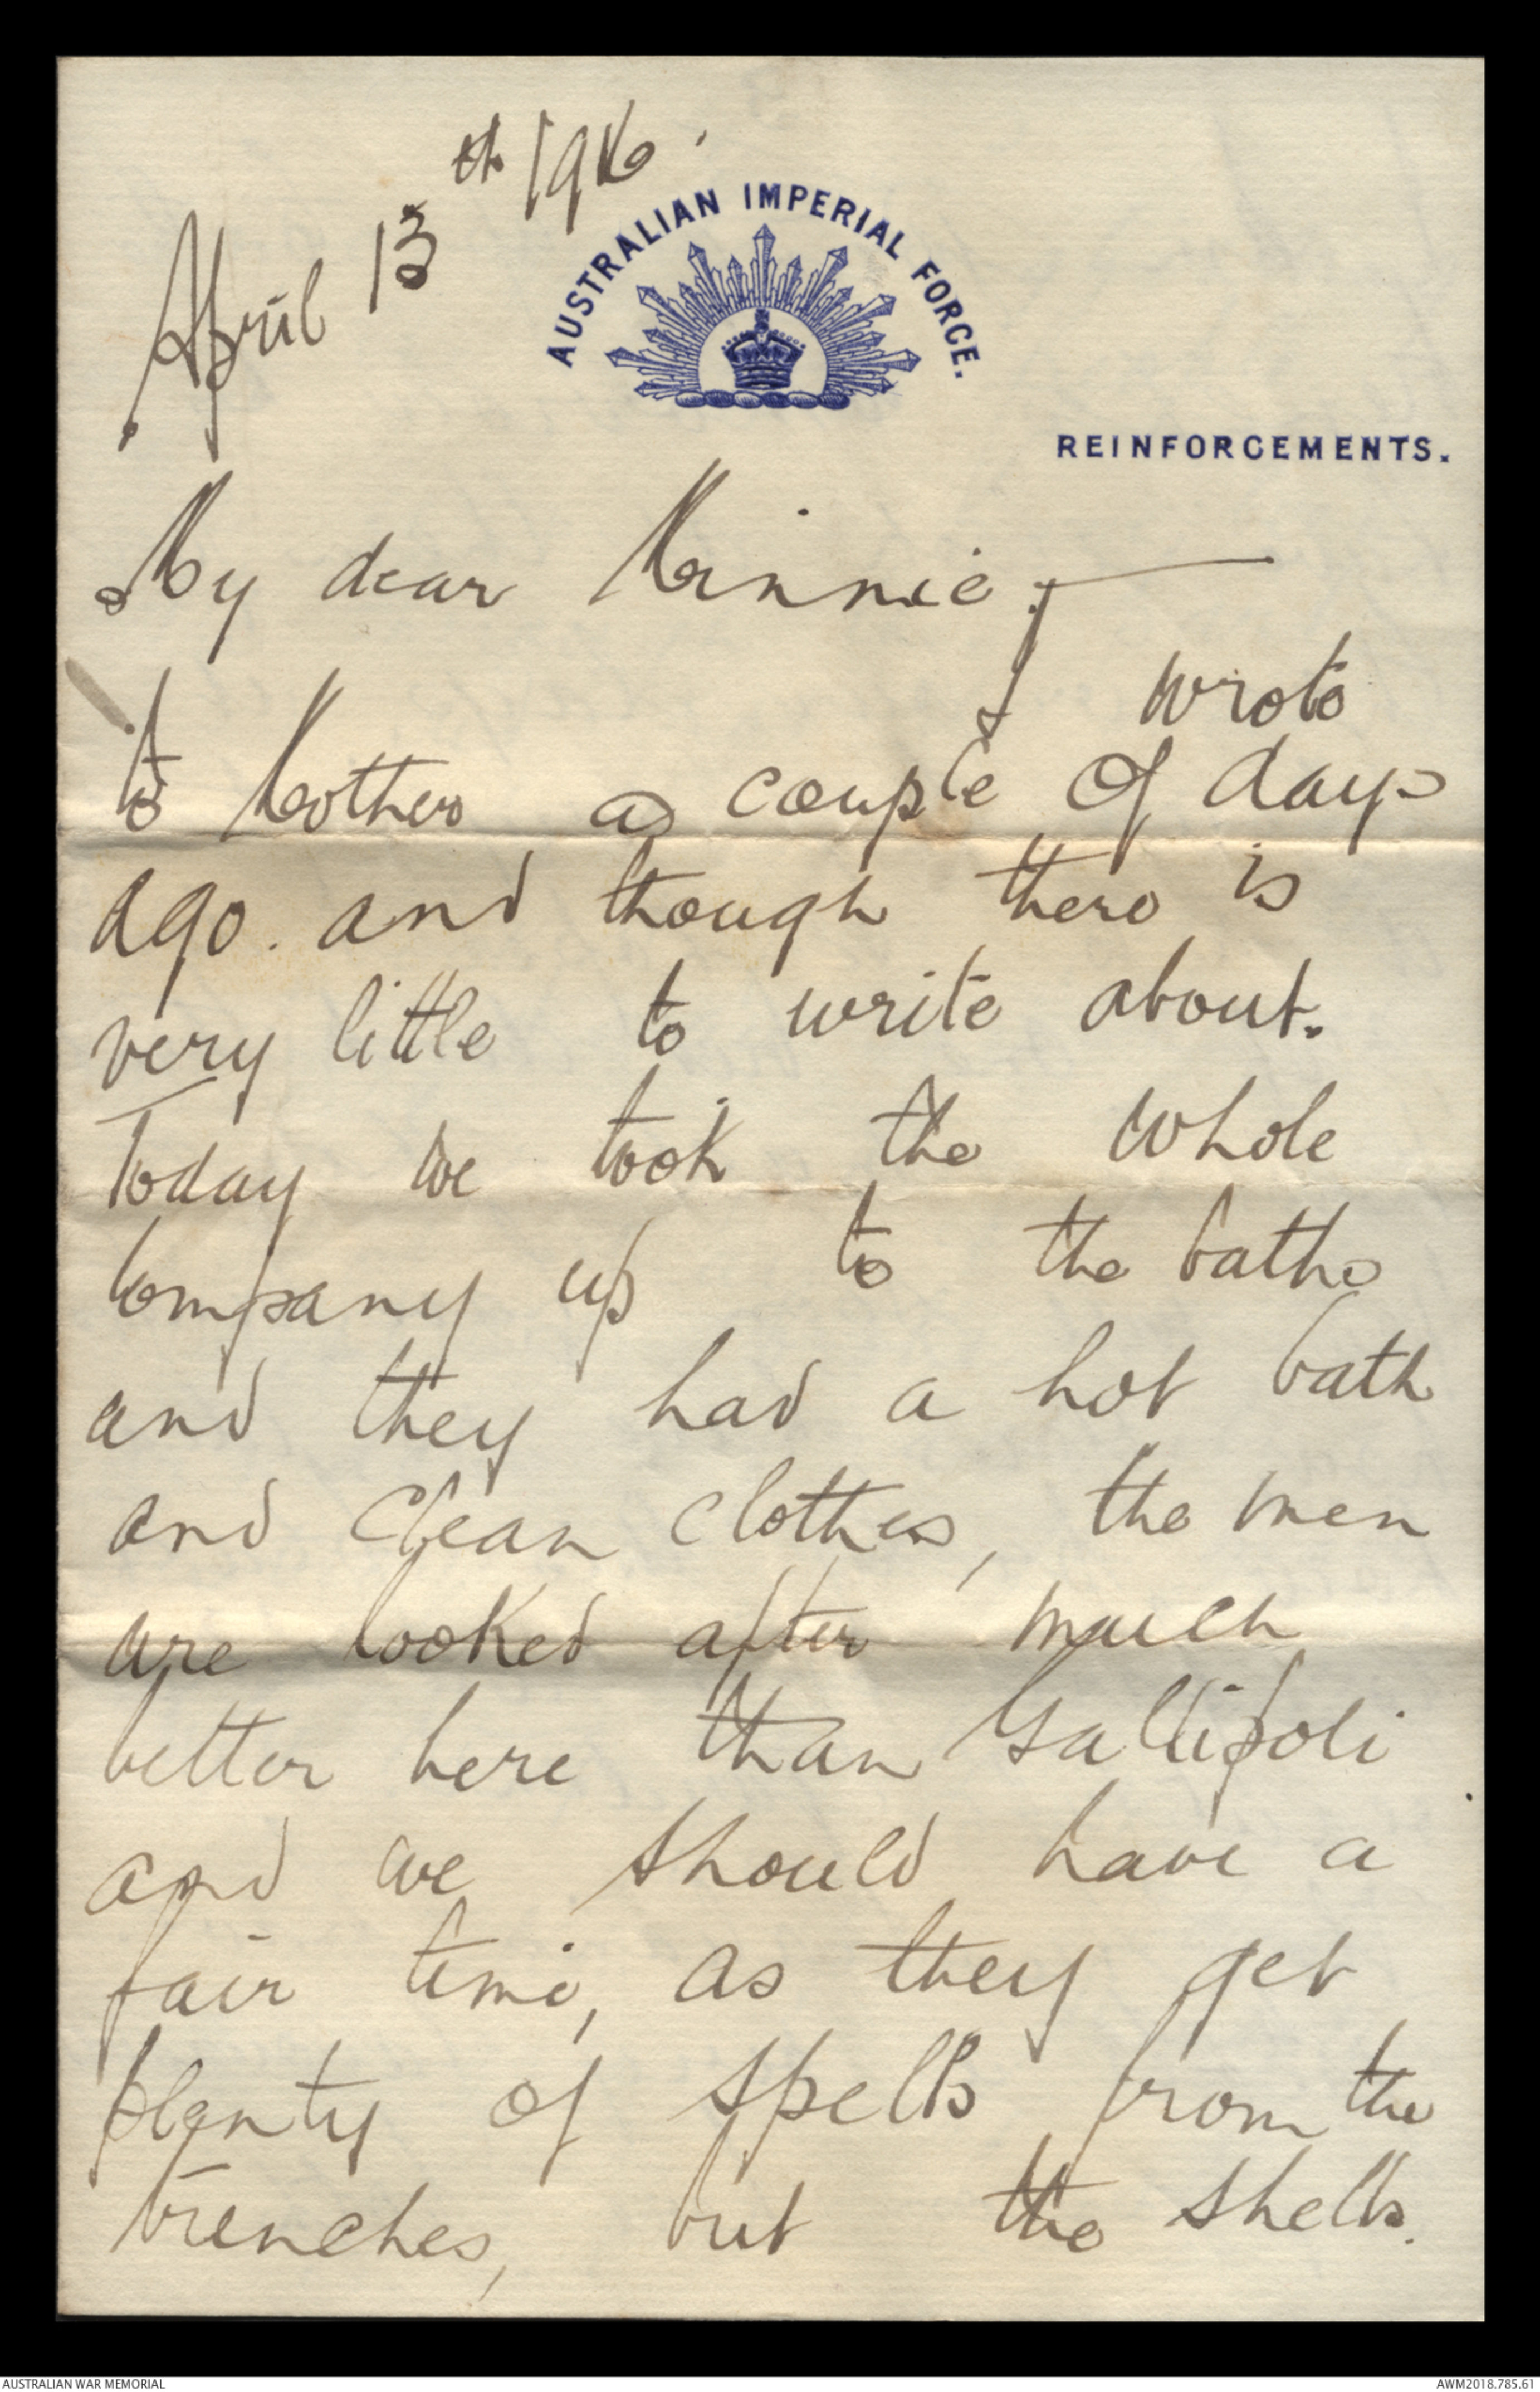 April 13th 1916.
AUSTRALIAN IMPERIAL FORCE.
REINFORCEMENTS.
My dear Minnie,
I wrote
to Mother a couple of days
ago. and though there is
very little to write about.
Today we took the whole
Company up to the baths
and they had a hot bath
and clean clothes, the men
are looked after much
better here than Gallipoli
and we should have a
fair time, as they get
plenty of spells from the
trenches, but the shells.
AUSTRALIAN WAR MEMORIAL
AWM2018.785.61